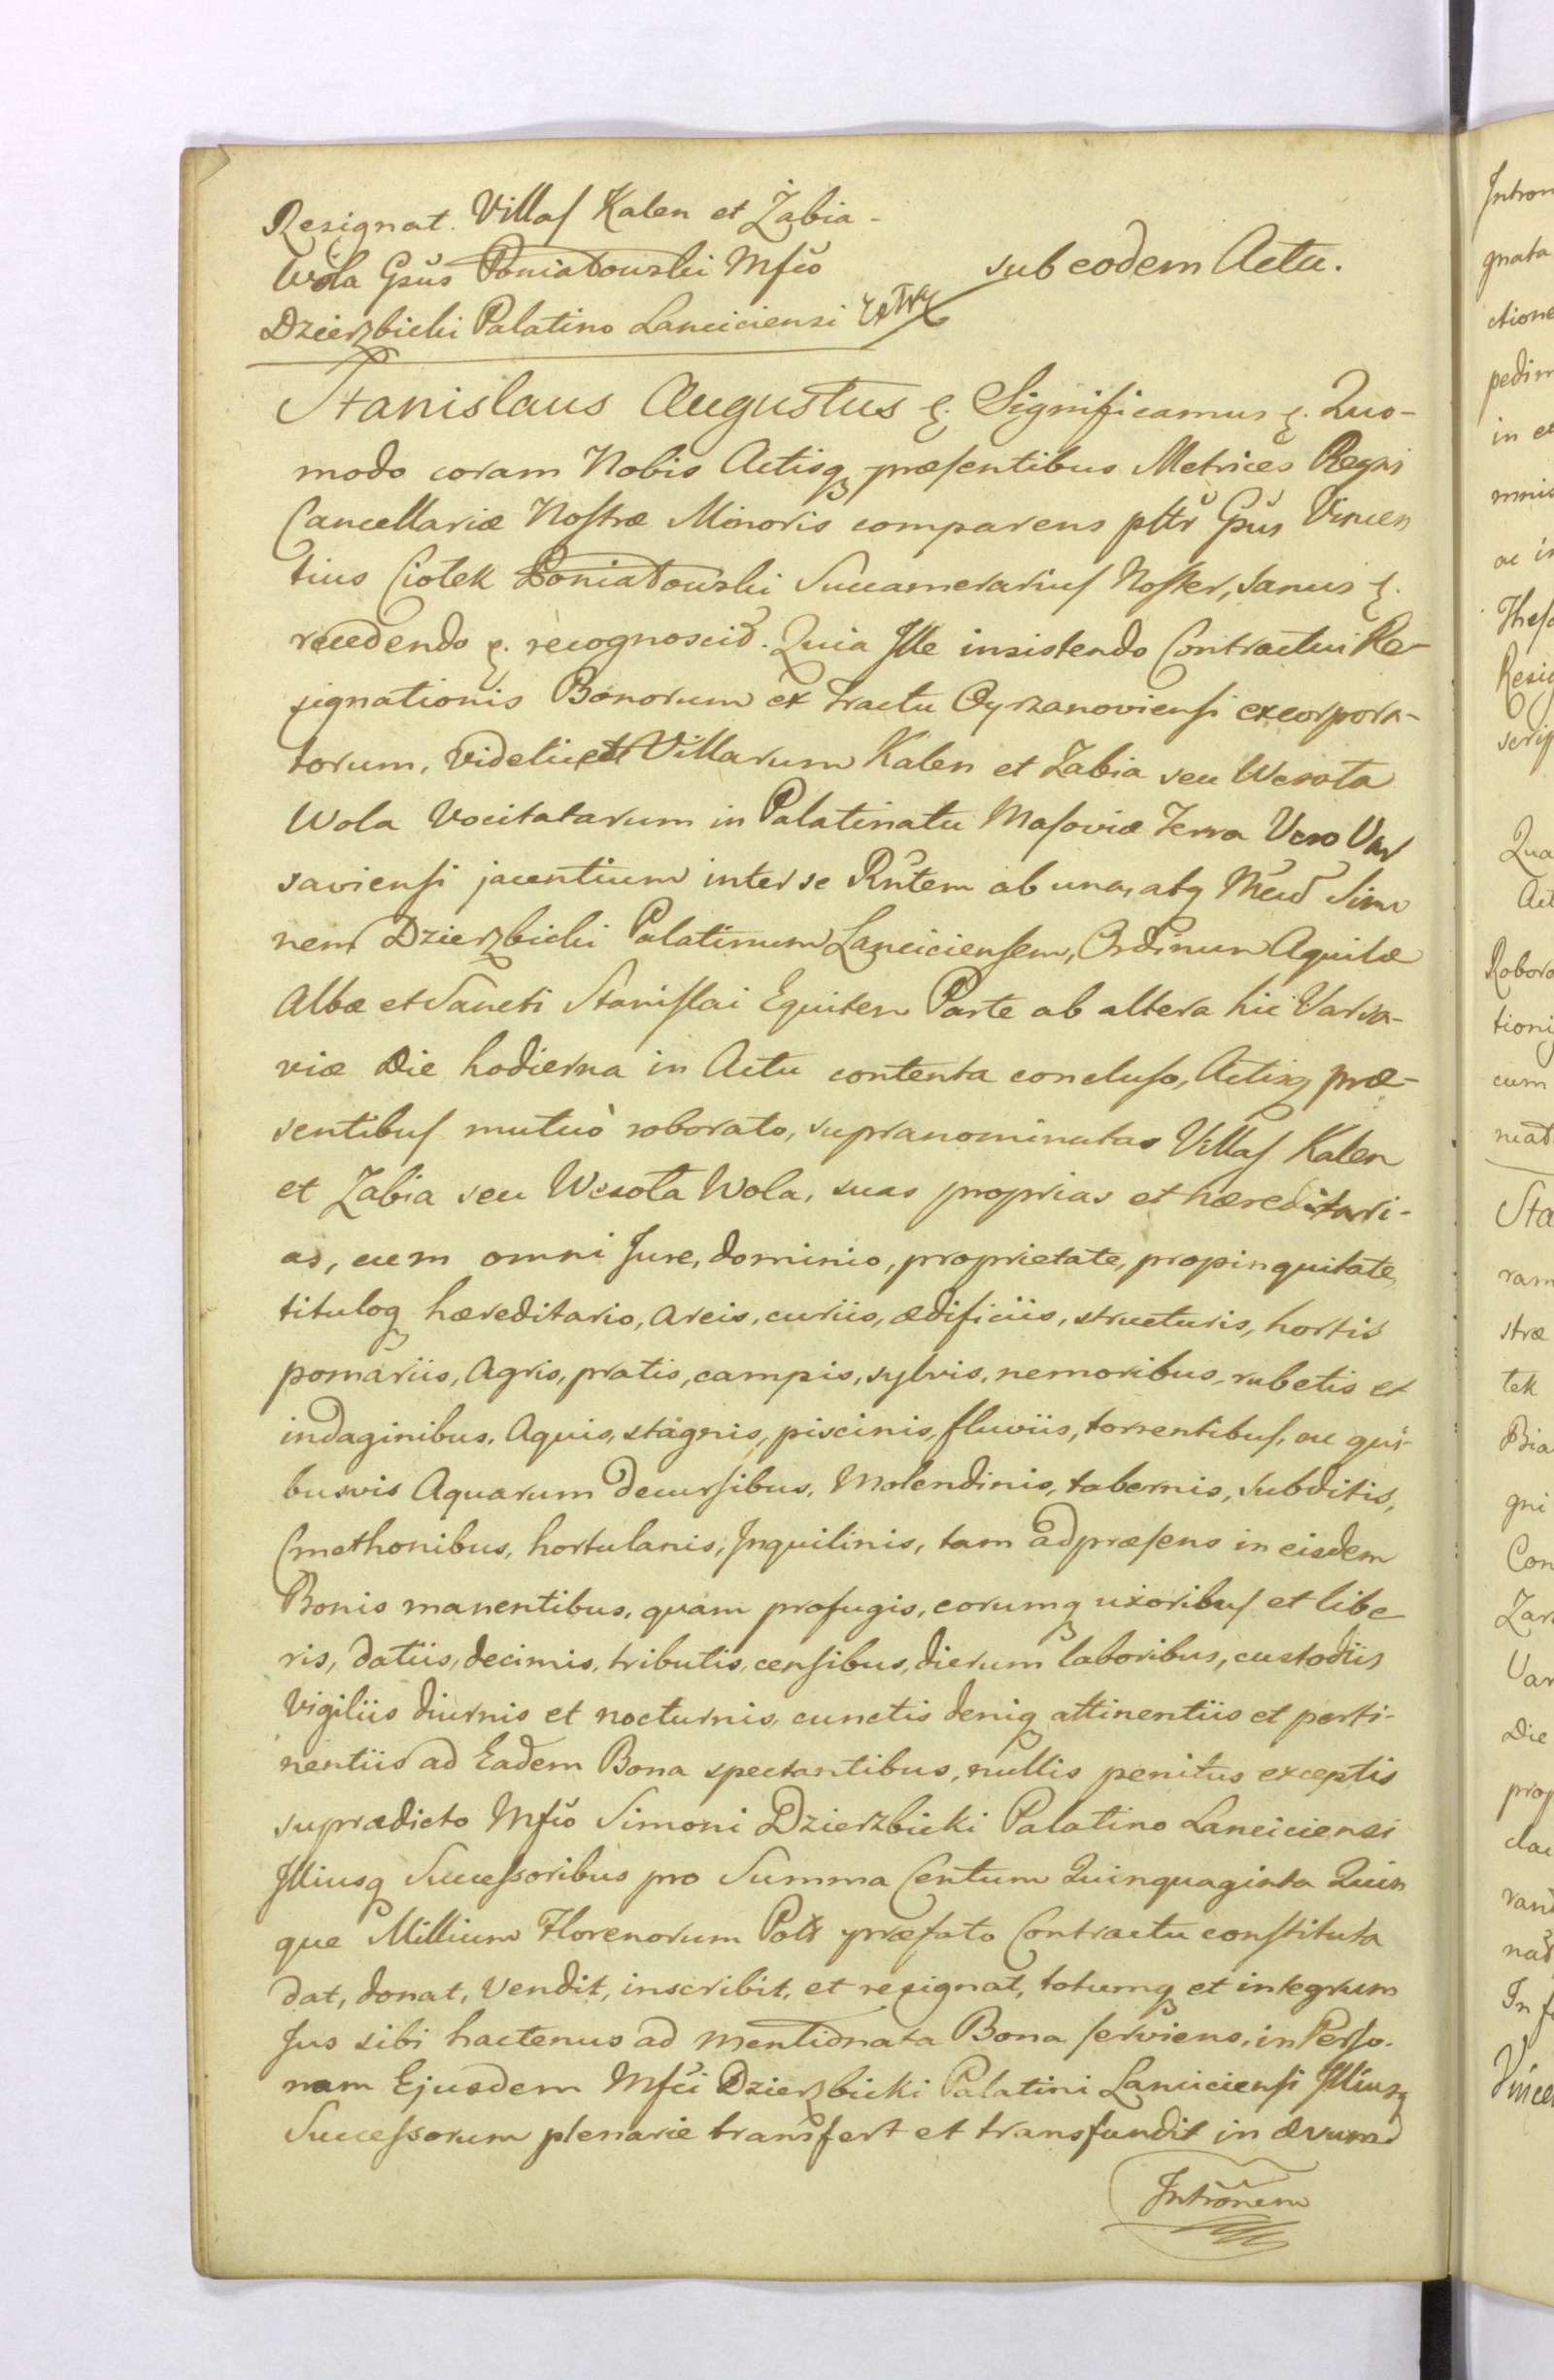 Resignat. Villas Kalen et Żabia-
Wola Gsus Poniatowski Mfco
Dzierzbicki Palatino Lanciciensi
sub eodem Actu.
Stanislaus Augustus &. Significamus &. Quo-
modo coram Nobis Actisq præsentibus Metrices Regni
Cancellariæ Nostræ Minoris comparens psltr Gsus Vincen
tius Ciołek Poniatowski Succamerarius Noster, sanus &.
recedendo &. recognoscit. Quia Ille insistendo Contractui Re-
signationis Bonorum ex tractu Oyrzanoviensi excorpora-
torum, videlicet Villarum Kalen et Zabia seu Wesoła
Wola Vocitatarum in Palatinatu Masoviæ Terra Vero Var
saviensi jacentium inter se Rntem ab una, atq Mcud Simo
nem Dzierzbicki Palatinum Lanciciensem, Ordinum Aquilæ
Albæ et Sancti Stanislai Equitem Parte ab altera hic Varsa-
viæ Die hodierna in Actu contenta concluso, Actisq præ-
sentibus mutuò roborato, supranominatas Villas Kalen
et Zabia seu Wesoła Wola, suas proprias et hæreditari-
as, cum omni Jure, dominio, proprietate, propinquitate,
tituloq hæreditario, areis, curiis, ædificiis, structuris, hortis
pomariis, Agris, pratis, campis, sylvis, nemoribus, rubetis et
indaginibus, Aquis, stagnis, piscinis, fluviis, torrentibus, ac qui-
busvis Aquarum decursibus, Molendinis, tabernis, subditis,
Cmethonibus, hortulanis, Inquilinis, tam ad præsens in eisdem
Bonis manentibus, quam profugis, eorumq uxoribus et libe
ris, datiis, decimis, tributis, censibus, dierum laboribus, custodiis
Vigiliis diurnis et nocturnis, cunctis deniq attinentiis et perti-
nentiis ad Eadem Bona spectantibus, nullis penitus exceptis
suprædicto Mfco Simoni Dzierzbicki Palatino Lanciciensi
Illiusq Successoribus pro Summa Centum Quinquaginta Quin
que Millium Florenorum Polł præfato Contractu constituta
dat, donat, Vendit, inscribit, et resignat, totumq et integrum
Jus sibi hactenus ad mentionata Bona serviens, in Perso-
nam Ejusdem Mfci Dzierzbicki Palatini Lanciciensi Illiusq
Successorum plenarie transfert et transfundit in ævum
Intrōnem